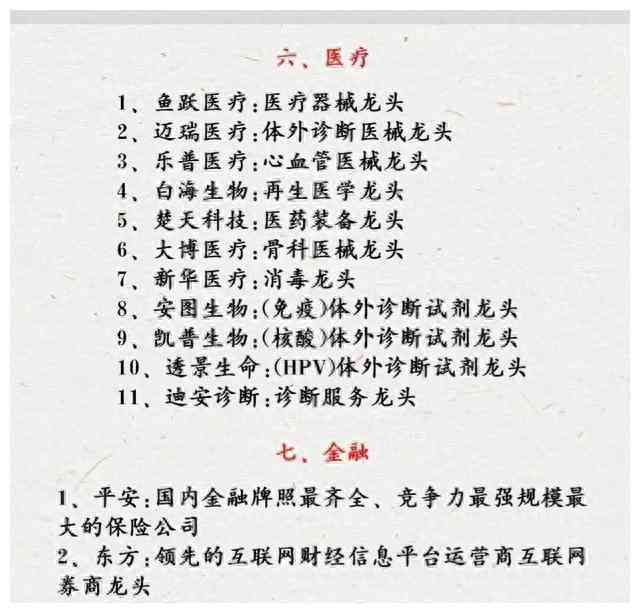 六、医疗
1、鱼跃医疗:医疗器械龙头
2、迈瑞医疗:体外诊断医械龙头
3、乐普医疗:心血管医械龙头
4、白海生物:再生医学龙头
5、楚天科技:医药装备龙头
6、大博医疗:骨科医械龙头
7、新华医疗:消毒龙头
8、安图生物:(免疫)体外诊断试剂龙头
9、凯普生物:(核酸)体外诊断试剂龙头
10、透景生命:(HPV)体外诊断试剂龙头
11、迪安诊断:诊断服务龙头
七、金融
1、平安:国内金融牌照最齐全、竞争力最强规模最
大的保险公司
2、东方:领先的互联网财经信息平台运营商互联网
券商龙头